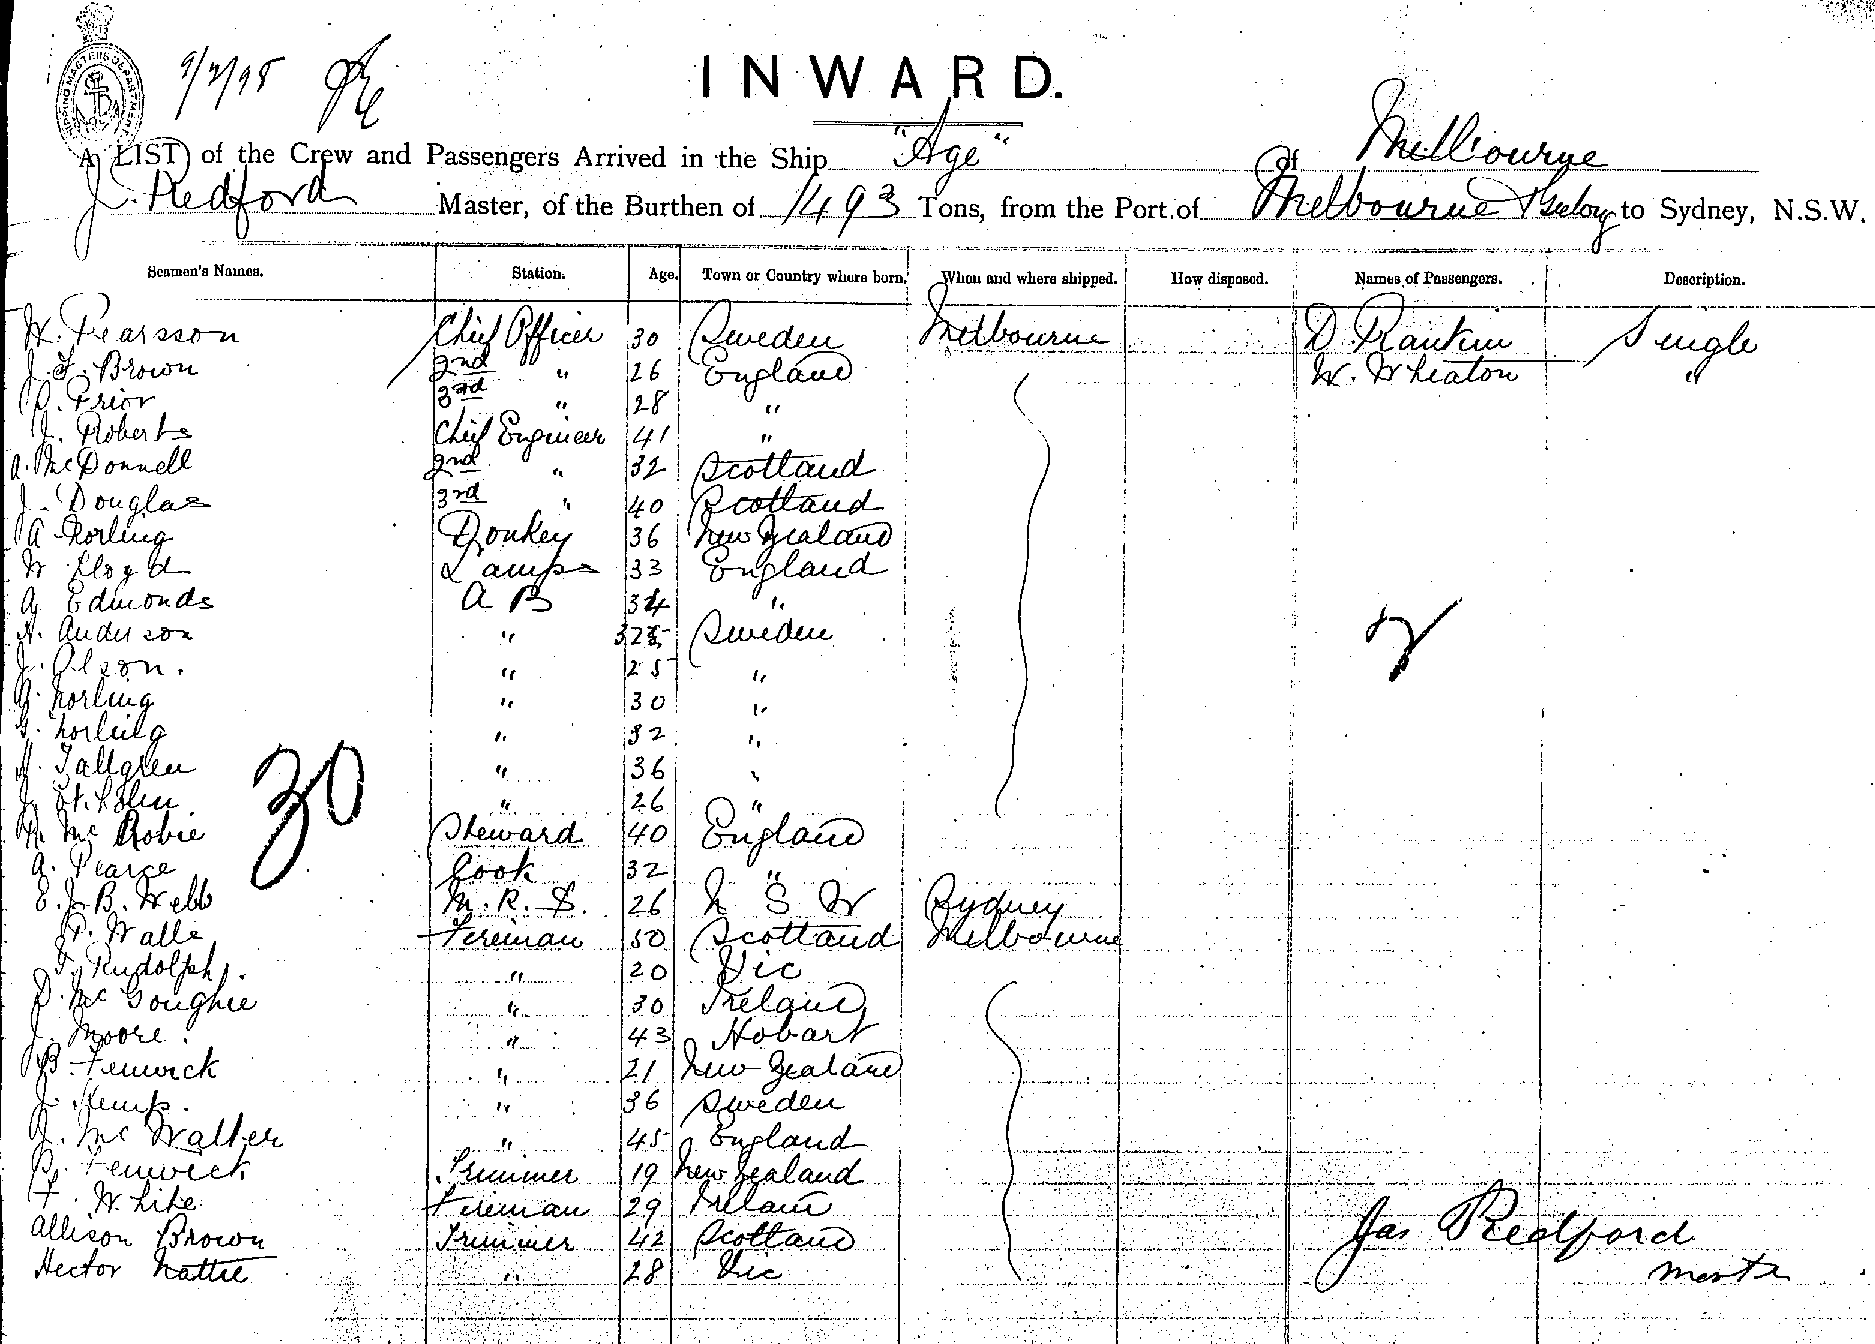 SHIPPING MASTER'S DEPARTMENT
9/7/98
INWARD.
A LIST of the Crew and Passengers Arrived in the Ship "Age" of Melbourne
J. Redford Master, of the Burthen of 1493 Tons, from the Port of Melbourne to Sydney, N.S.W.
Seamen's Names. Station. Age. Town or Country where born. When and where shipped. How disposed. Names of Passengers. Description.
W. Pearsson Chief Officer 30 Sweden Melbourne D Rankin Single
J. F. Brown 2nd " 26 England W. Wheaton "
Prior 3rd " 28 "
J. Roberts Chief Engineer 41 "
A. McDonnell 2nd " 32 Scotland
J. Douglas 3rd " 40 Scotland
A Norling Donkey 36 New Zealand
W Lloyd Lamps 33 England
A Edmonds A B 34 "
A. Anderson " Sweden
J. Olson. " 25 "
A. Norling " 30 "
G. Norling " 32 "
J. Tallgren " 36 "
J. " 26 "
30
2
R. McRobie Steward 40 England
A. Pearce Cook 32 "
E. J. B. Webb M. R. S. 26 N S W Sydney
P. Walls Fireman 50 Scotland Melbourne
F. Rudolph. " 20 Vic
D. McGoughie " 30 Ireland
J. Moore. " 43 Hobart
B Fenwick " 21 New Zealand
J. Kemp. " 36 Sweden
J. McWalter " 45 England
Fenwick Trimmer 19 New Zealand
F. White Fireman 29 Ireland
Allison Brown Trimmer 42 Scotland
Hector Nattie " 28 Vic
Jas Redford
Master